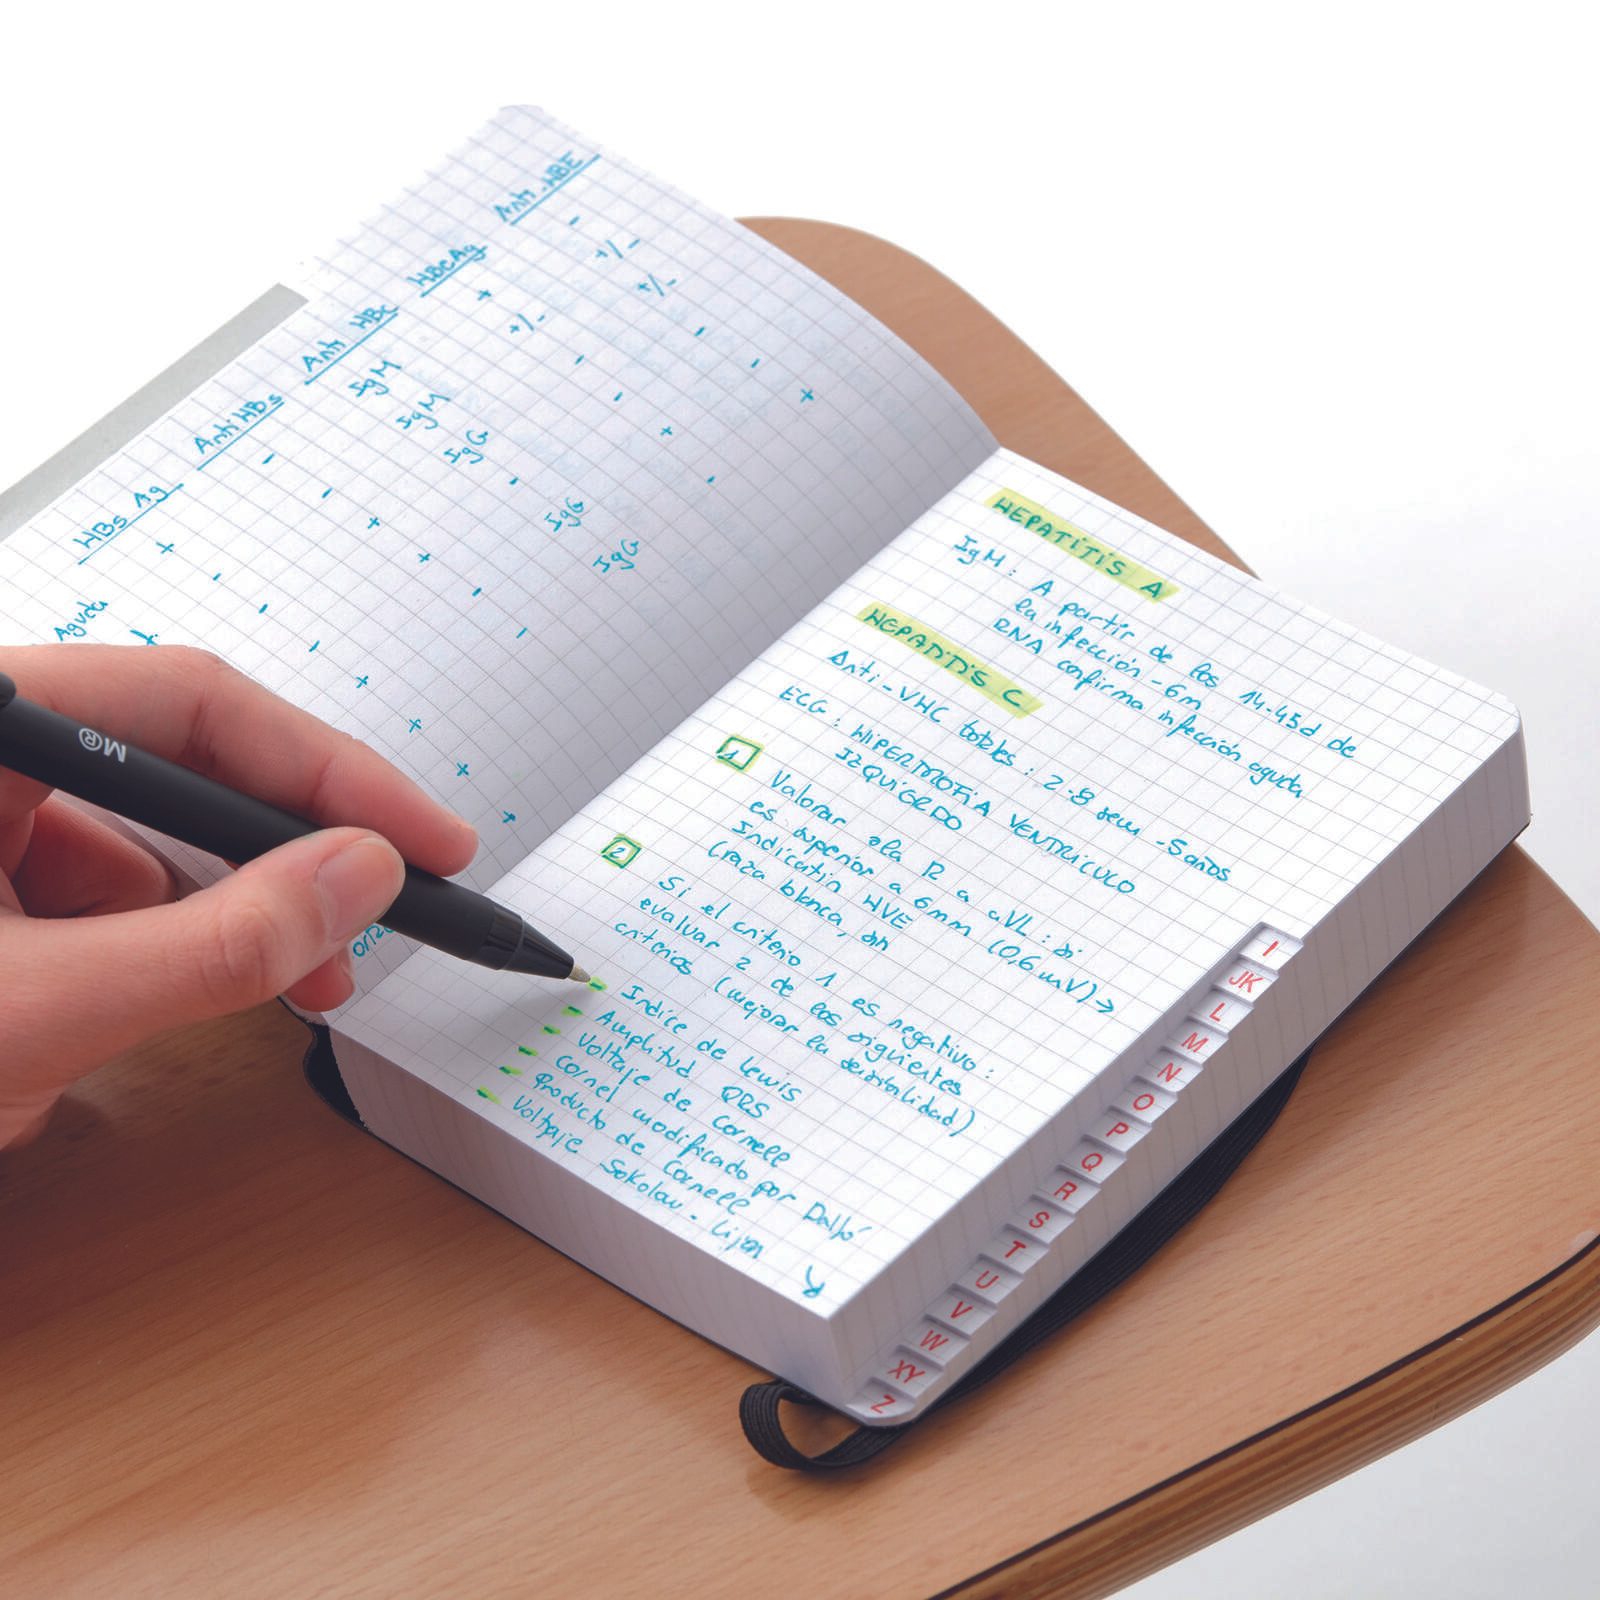 HBs Ag AntiHBs Anti HBc HBcAg Anti-HBE
Aguda + - IgM + -
- - IgM +/- +/-
- + IgG - +/-
- + - - -
+ - IgG + -
+ - IgG - +
+
+
HEPATITIS A
IgM : A partir de los 14-45d de
la infección - 6m
RNA confirma infección aguda
HEPATITIS C
Anti-VHC totales : 2-8 sem - 5 años
ECG : HIPERTROFIA VENTRÍCULO
IZQUIERDO
1 Valorar la R a aVL : si
es superior a 6mm (0,6 mV) →
Indicatiu HVE
(raza blanca,
2 Si el criterio 1 es negativo :
evaluar 2 de los siguientes
criterios (mejorar la sensibilidad)
- Indice de Lewis
- Amplitud QRS
- Voltaje de Cornell
- Cornel modificado por Dalfó
- Producto de Cornell
- Voltaje Sokolow - Lijon
I
JK
L
M
N
O
P
Q
R
S
T
U
V
W
XY
Z
M®